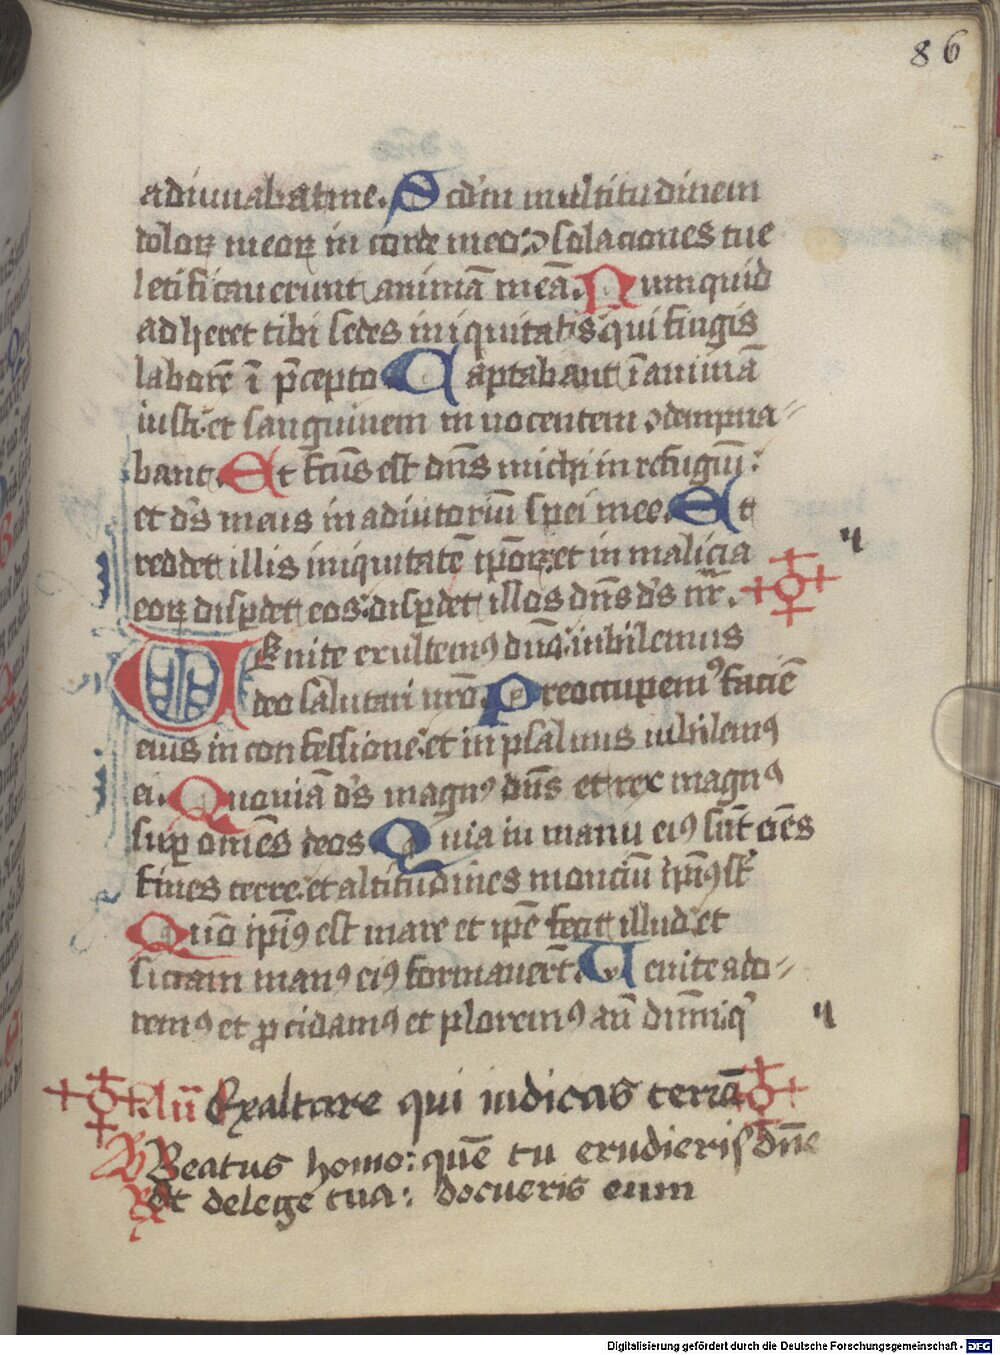 86
adiuuabat me. Scd'm multitudinem
doloꝝ meoꝝ in corde meo: ↄsolaciones tue
letificauerunt animā meā. Numquid
adheret tibi sedes iniquitatis: qui fingis
laborē ī p̄cepto Captabant ī animā
iusti: et sanguinem innocentem ↄdempna⸗
bant. Et fc̄us est dn̄s michi in refugiū:
et d's meus in adiutoriū spei mee. Et
reddet illis iniquitatē ip̄oꝝ: et in malicia
eoꝝ disꝑdet eos: disꝑdet illos dn̄s d's nr̄.
Uenite exultemꝰ dn̄o: iubilemus
deo salutari nr̄o. Preoccupemꝰ faciē
eius in confessione: et in psalmis iubilemꝰ
ei. Quoniā d's magnꝰ dn̄s et rex magnꝰ
suꝑ omēs deos Quia in manu eiꝰ sūt oēs
fines terre: et altitudines monciū ip̄iꝰ st̄
Qūo ip̄iꝰ est mare et ip̄e fecit illud: et
siccam manꝰ eiꝰ formauer̄t. Uenite ado⸗
remꝰ et ꝓcidamꝰ et ploremꝰ an̄ dn̄m: q'
Exaltare qui iudicas terrā
Beatus homo: quē tu erudieris dn̄e
Et de lege tua: docueris eum
Digitalisierung gefördert durch die Deutsche Forschungsgemeinschaft - DFG